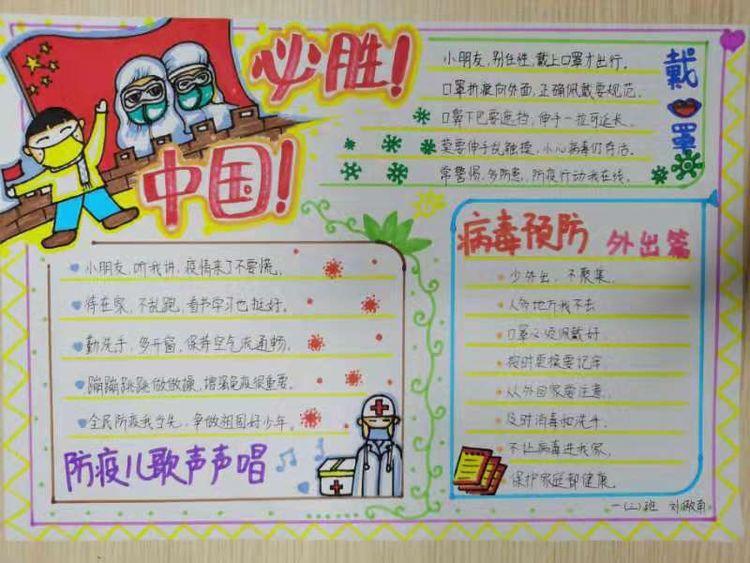 必胜!
中国!
小朋友,别任性,戴上口罩才出行。
口罩折痕向外面,正确佩戴要规范。
口罩下巴要遮挡,伸手一拉可延长。
莫要伸手乱触摸,小心病毒仍存活。
常警惕,多防患,防疫行动我在线。
戴口罩
小朋友,听我讲,疫情来了不要慌。
待在家,不乱跑,看书学习也挺好。
勤洗手,多开窗,保持空气流通畅。
蹦蹦跳跳做做操,增强免疫很重要。
全民防疫我当先,争做祖国好少年。
防疫儿歌声声唱
病毒预防 外出篇
少外出,不聚集。
人多地方我不去
口罩必须佩戴好。
按时更换要记牢
从外回家要注意。
及时消毒和洗手。
不让病毒进我家。
保护家庭都健康。
一(二)班 刘